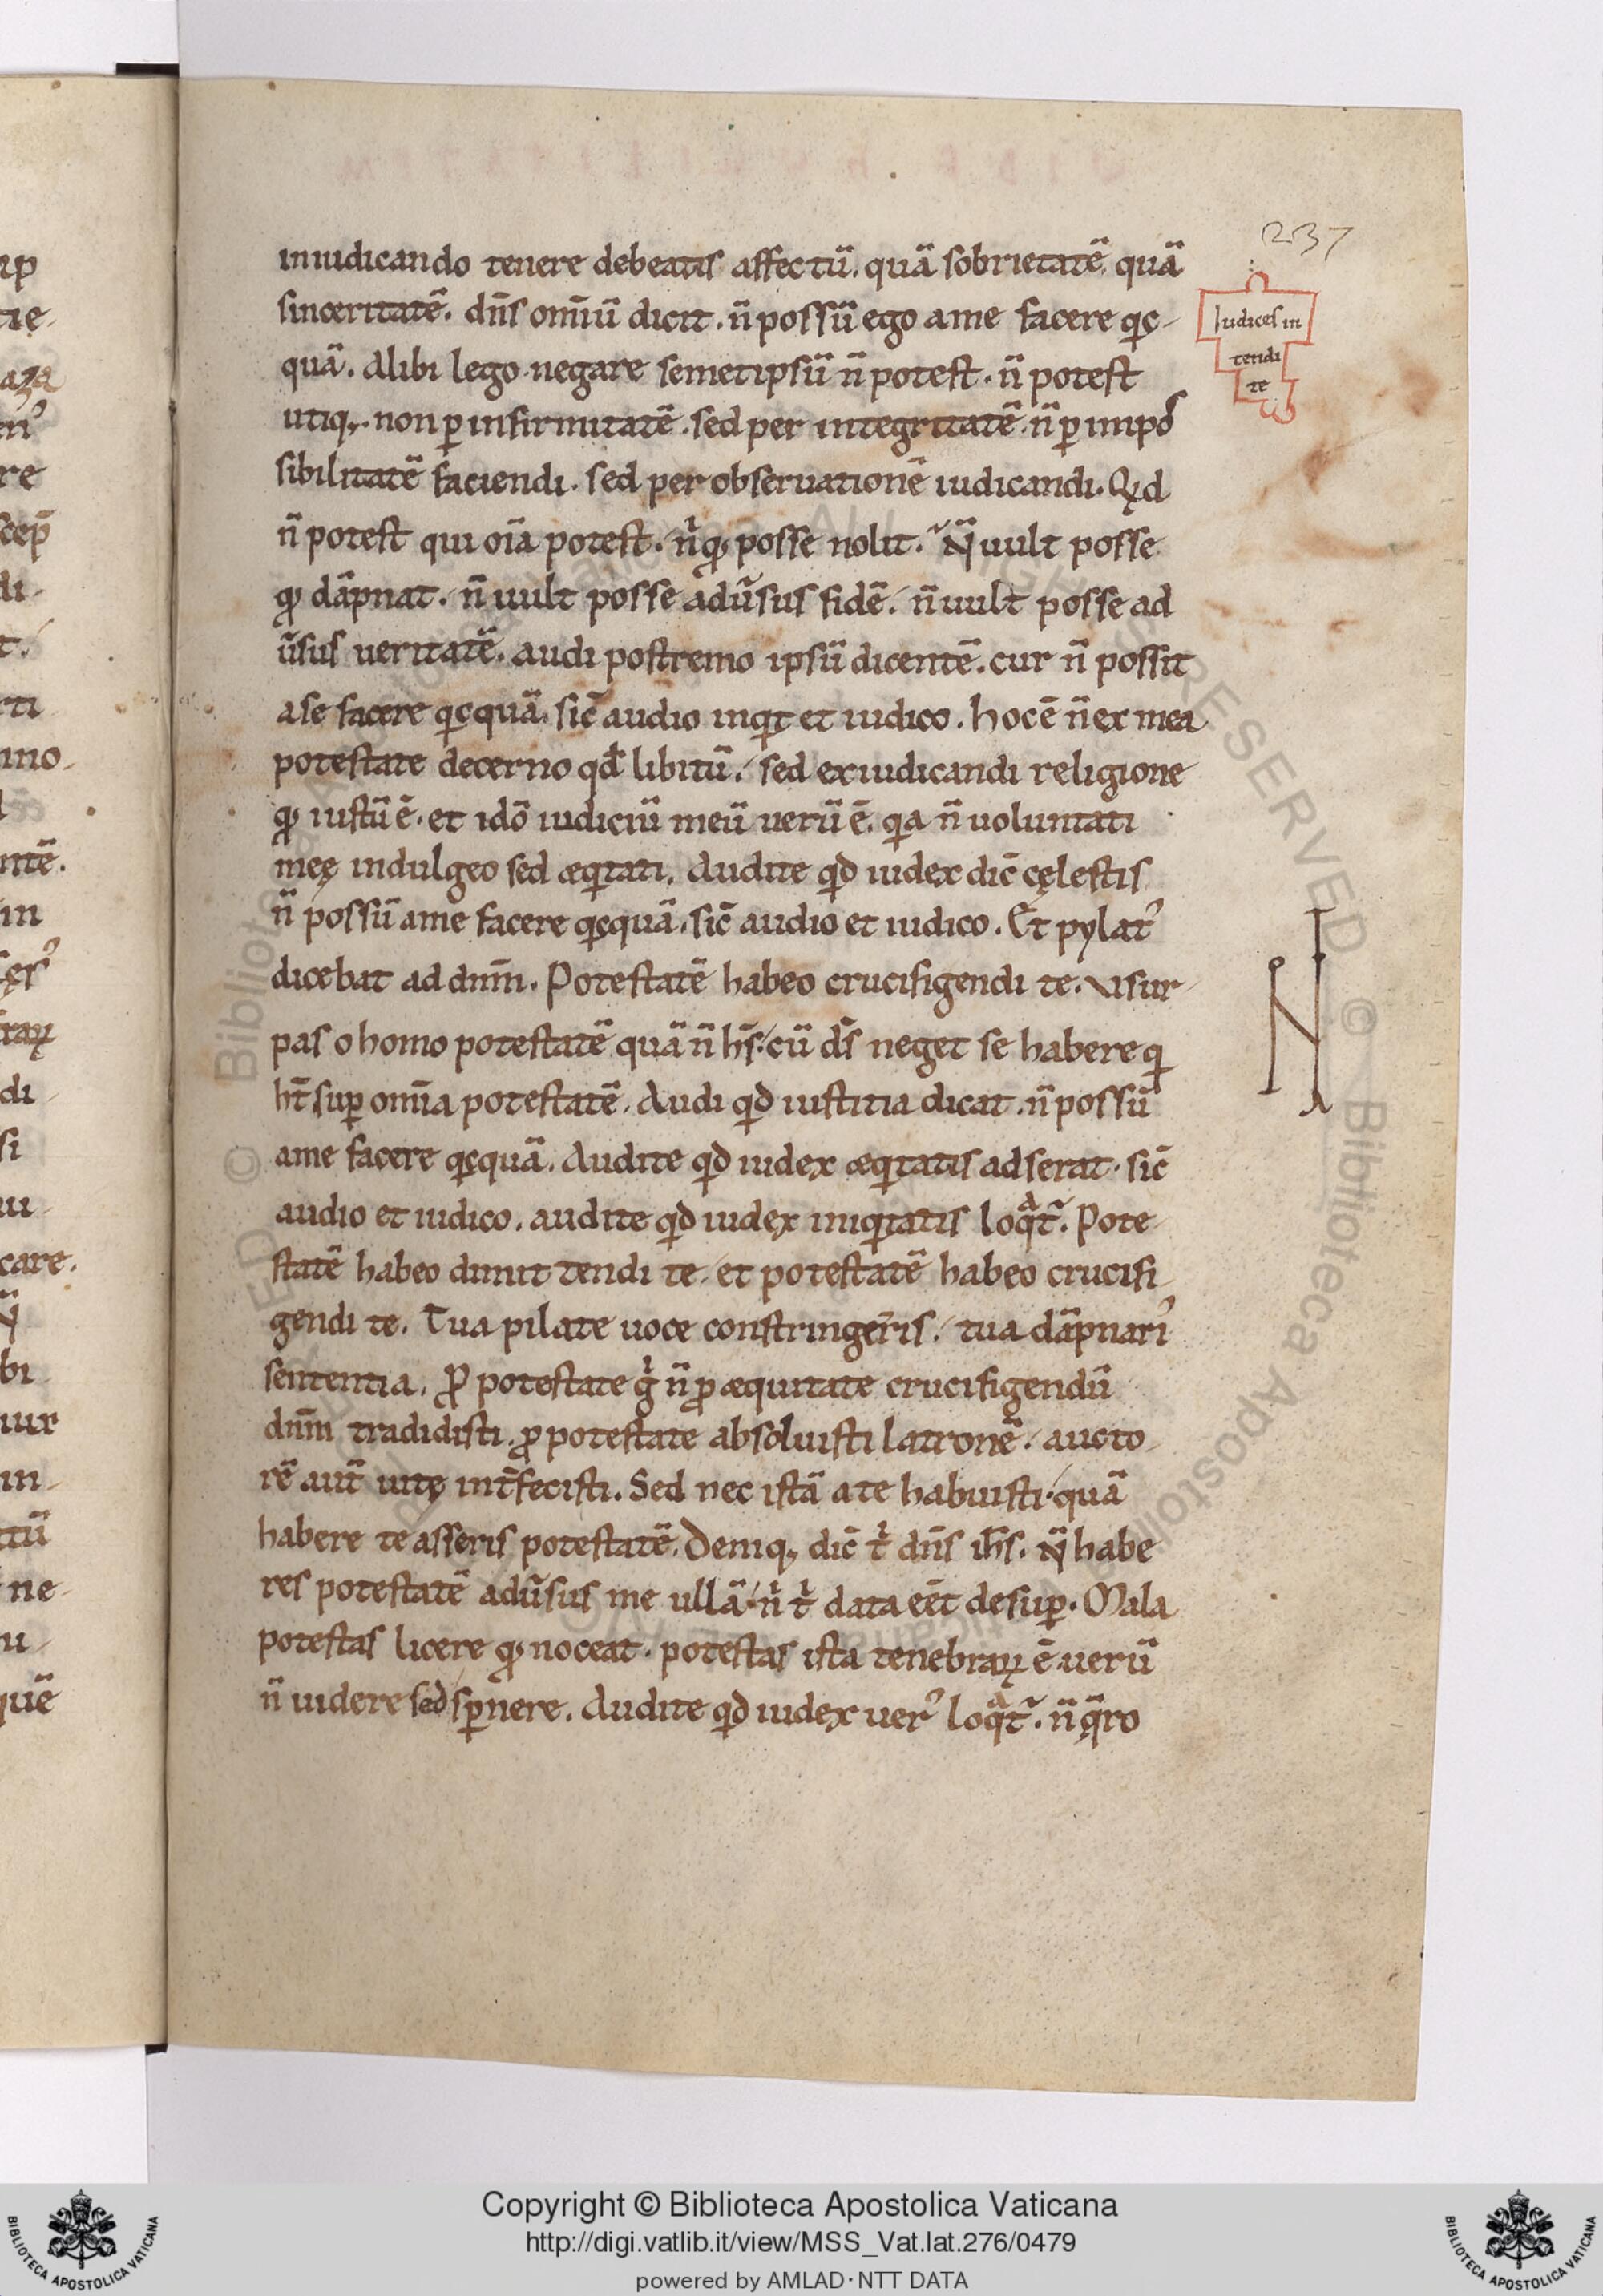 237
iniudicando tenere debeatis affectū. quā sobrietatē. quā
sinceritatē. dn̄s om̄iū dicit. n̄ possū ego ame facere qic-
quā. Alibi lego negare semetipsū n̄ potest. n̄ potest
utiq;. non ꝑ infirmitatē. sed per integritatē. n̄ ꝑ impos
sibilitatē faciendi. sed per obseruationē iudicandi. Qid
n̄ potest qui oīa potest. nͥ qͦ posse nolit. N̄ uult posse
qͦ dāpnat. n̄ uult posse adūsus fidē. n̄ uult posse ad
ūsus ueritatē. audi postremo ipsū dicentē. cur n̄ possit
ase facere qicquā. sic̄ audio inqit et iudico. hocē n̄ ex mea
potestate decerno qd̄ libitū. sed exiudicandi religione
qͦ iustū ē. et idō iudiciū meū uerū ē. qia n̄ uoluntati
meę indulgeo sed æqitati. Audite qid iudex dic̄ cęlestis
n̄ possū ame facere qicquā. sic̄ audio et iudico. Et pylatꝰ
dicebat ad dnm̄. Potestatē habeo crucifigendi te. usur-
pas o homo potestatē quā n̄ hs̄. cū ds̄ neget se habere qi
ht̄ suꝑ om̄ia potestatē. Audi qid iustitia dicat. n̄ possū
ame facere qicquā. Audite qid iudex æqitatis adserat. sic̄
audio et iudico. audite qid iudex iniqitatis loqͣt᷑. Pote-
statē habeo dimittendi te. et potestatē habeo crucifi-
gendi te. Tua pilate uoce constringer̄is. tua dāpnarꝰ
sententia. Ꝓ potestate gͥ n̄ ꝓ æquitate crucifigendū
dnm̄ tradidisti. ꝓ potestate absoluisti latronē. aucto-
rē aut̄ uitę int̄fecisti. Sed nec istā a te habuisti. quā
habere te asseris potestatē. Deniq; dic̄ tͥ dn̄s ih̄s. N̄ habe
res potestatē adūsus me ullā. nͥ tͥ data eēt desuꝑ. Mala
potestas licere qͦ noceat. potestas ista tenebraꝝ ē uerū
n̄ uidere sed sꝑnere. Audite qid iudex uerꝰ loqͣt᷑. n̄ q̄ro
Iudices in
tendi
te
Copyright © Biblioteca Apostolica Vaticana
http://digi.vatlib.it/view/MSS_Vat.lat.276/0479
powered by AMLAD·NTT DATA
BIBLIOTECA APOSTOLICA VATICANA
BIBLIOTECA APOSTOLICA VATICANA